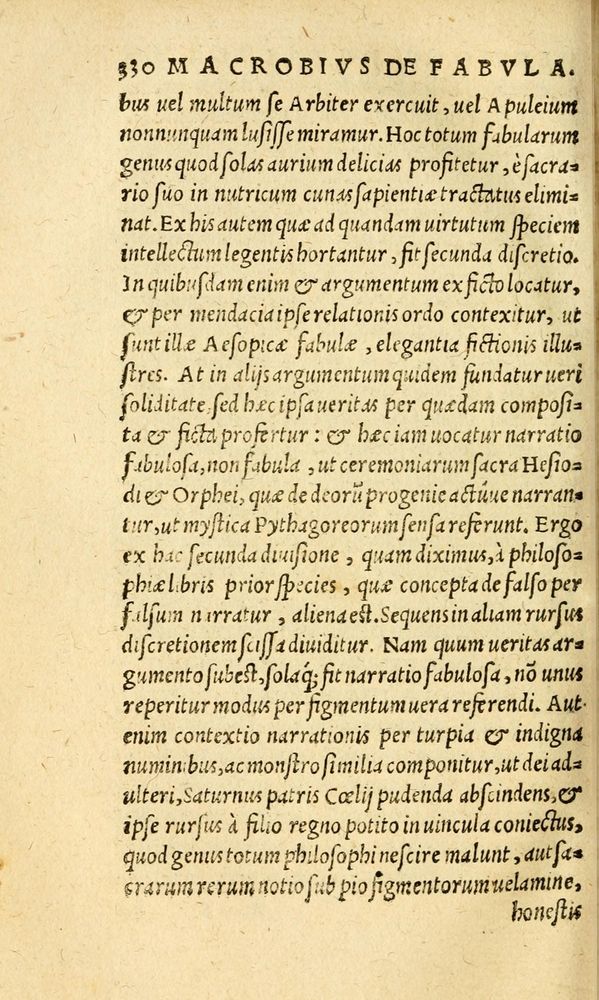 330 MACROBIVS DE FABVLA.
bus uel multum se Arbiter exercuit, uel Apuleium
nonnunquam lusisse miramur. Hoc totum fabularum
genus quod solas aurium delicias profitetur, è sacra-
rio suo in nutricum cunas sapientiæ tractatus elimi-
nat. Ex his autem quæ ad quandam uirtutum speciem
intellectum legentis hortantur, fit secunda discretio.
In quibusdam enim & argumentum ex ficto locatur,
& per mendacia ipse relationis ordo contexitur, ut
sunt illæ Aesopicæ fabulæ, elegantia fictionis illu-
stres. At in alijs argumentum quidem fundatur ueri
soliditate, sed hæc ipsa ueritas per quædam composi-
ta & ficta profertur: & hæc iam uocatur narratio
fabulosa, non fabula, ut ceremoniarum sacra Hesio-
di & Orphei, quæ de deorũ progenie actúue narran-
tur, ut mystica Pythagoreorum sensa referunt. Ergo
ex hac secunda diuisione, quam diximus, à philoso-
phiæ libris prior species, quæ concepta de falso per
falsum narratur, aliena est. Sequens in aliam rursus
discretionem scissa diuiditur. Nam quum ueritas ar-
gumento subest, solaq́; fit narratio fabulosa, nõ unus
reperitur modus per figmentum uera referendi. Aut
enim contextio narrationis per turpia & indigna
numinibus, ac monstro similia componitur, ut dei ad-
ulteri, Saturnus patris Cœlij pudenda abscindens, &
ipse rursus à filio regno potito in uincula coniectus,
quod genus totum philosophi nescire malunt, aut sa-
crarum rerum notio sub pio figmentorum uelamine,
honestis